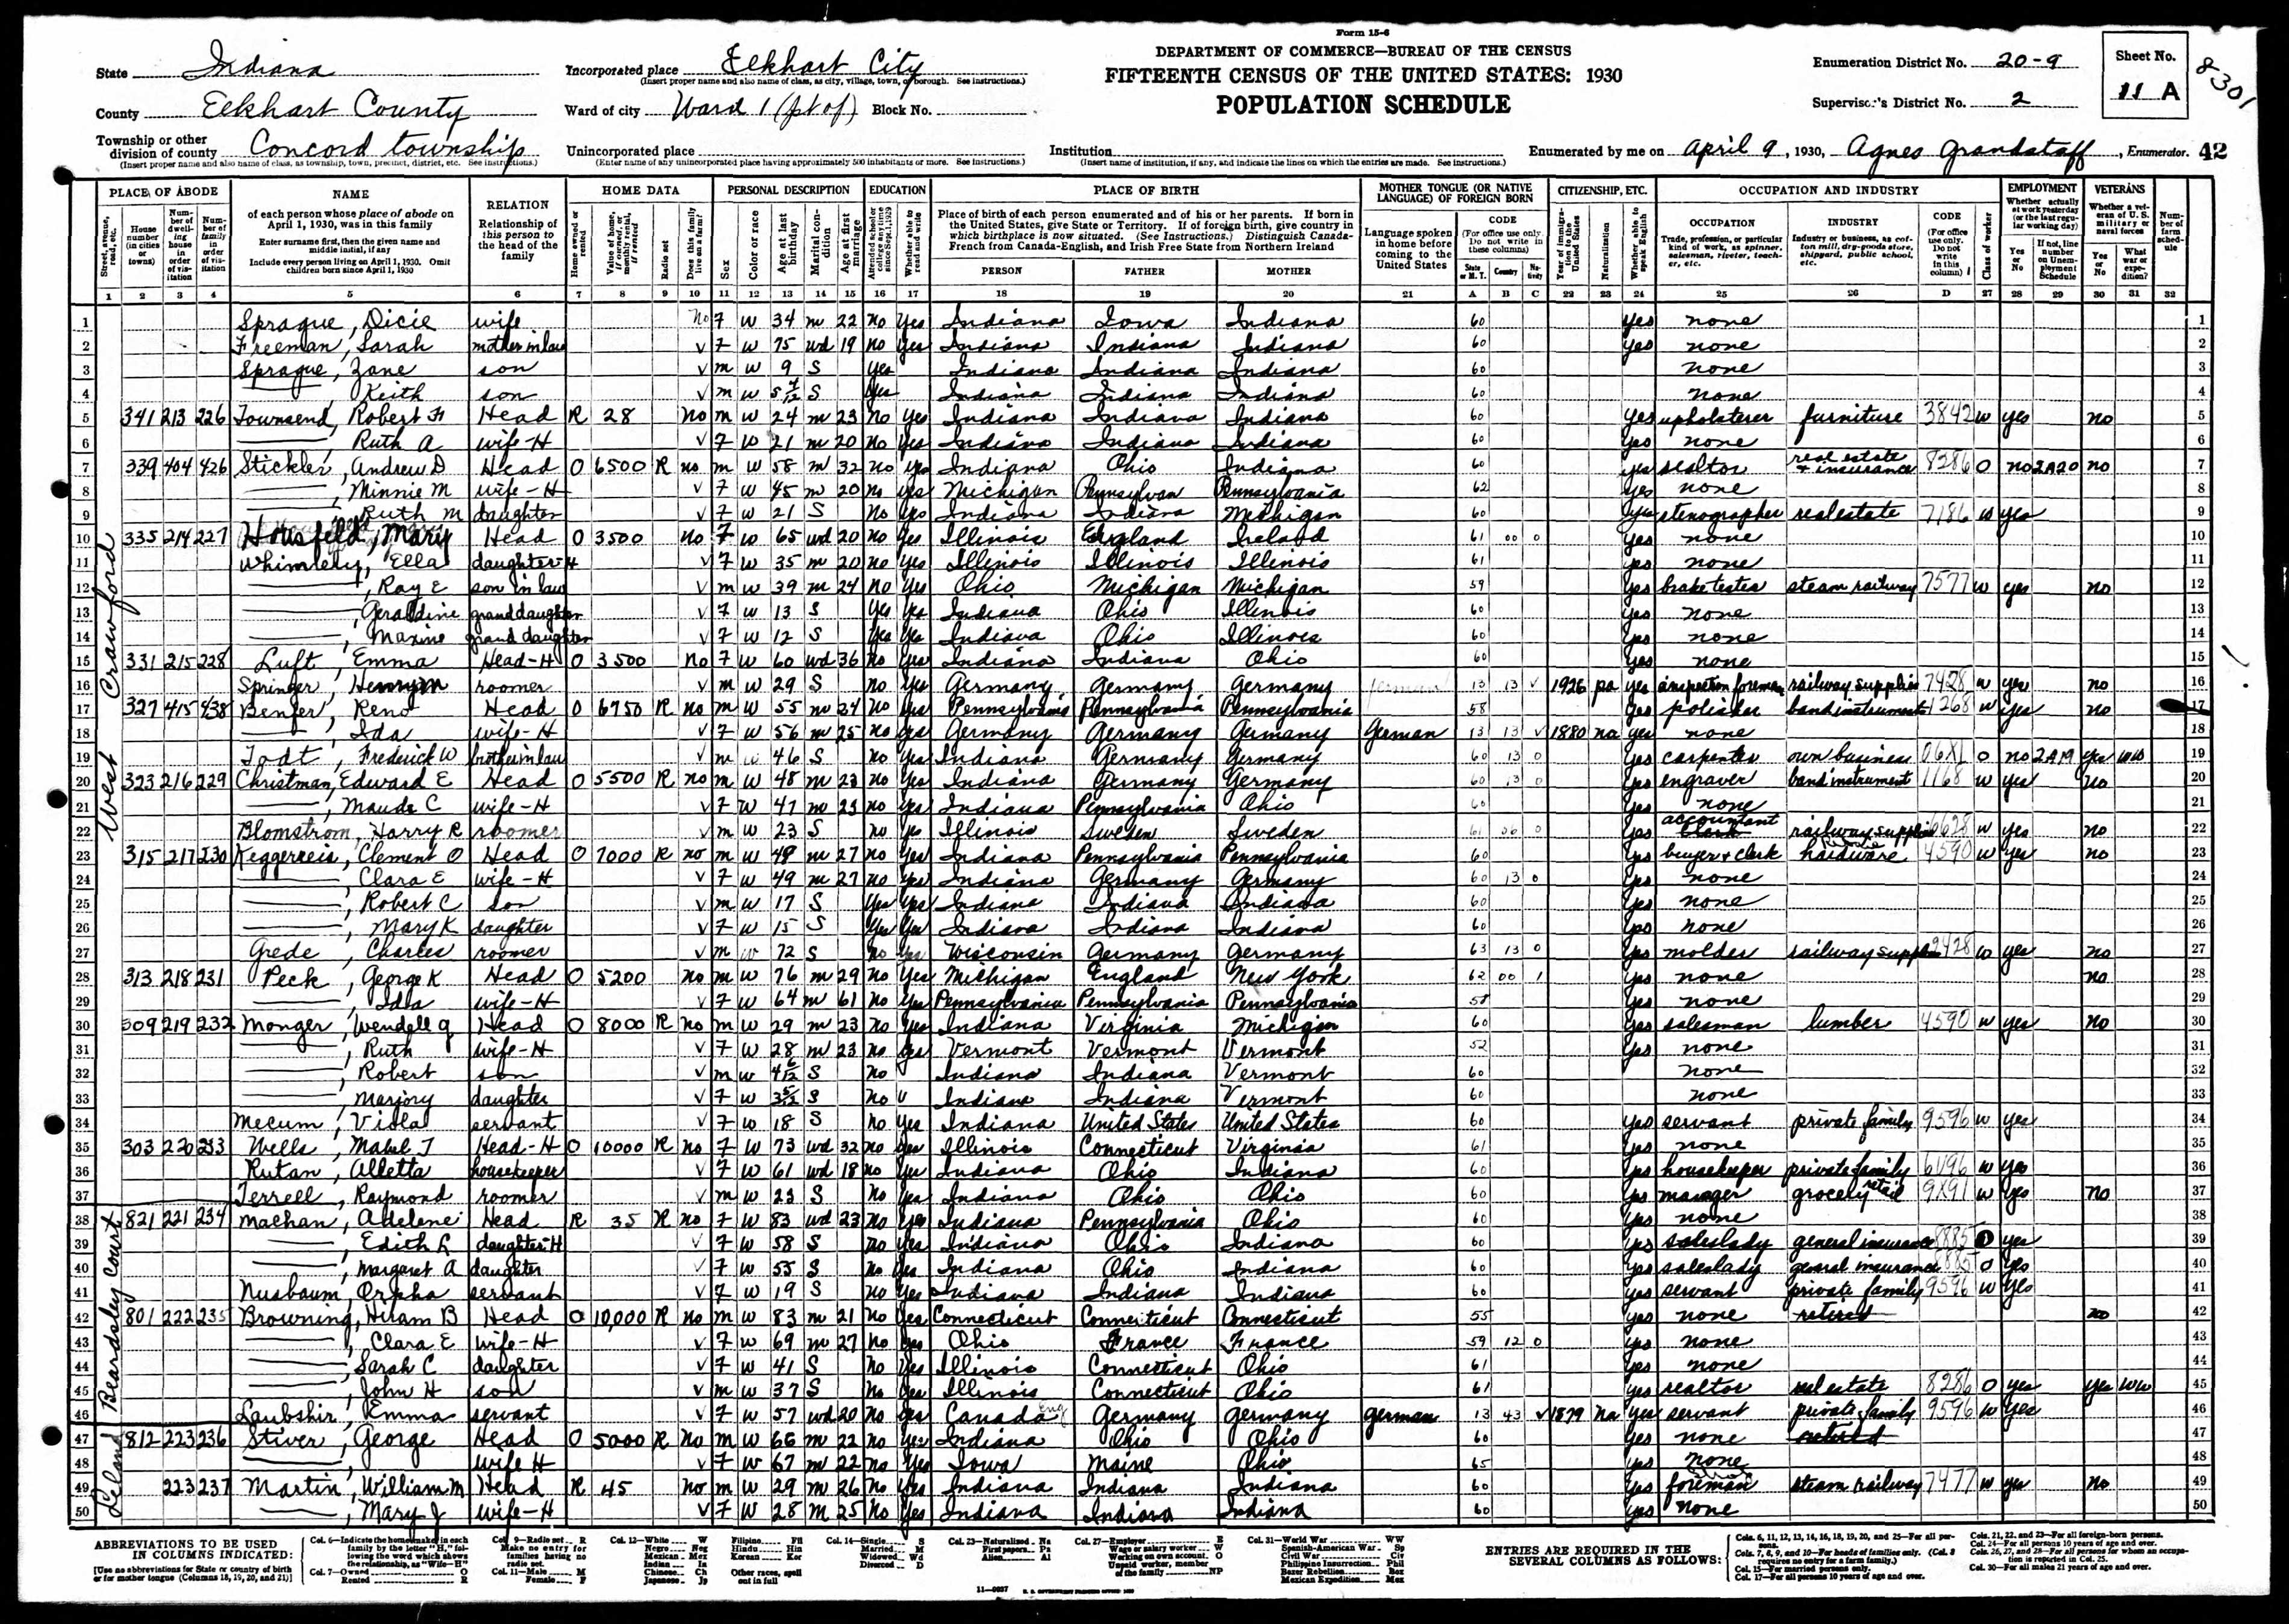 Form 15-6
DEPARTMENT OF COMMERCE—BUREAU OF THE CENSUS
FIFTEENTH CENSUS OF THE UNITED STATES: 1930
POPULATION SCHEDULE
State Indiana
County Elkhart County
Township or other division of county Concord township
(Insert proper name and also name of class, as township, town, precinct, district, etc. See instructions.)
Incorporated place Elkhart City
(Insert proper name and also name of class, as city, village, town, or borough. See instructions.)
Ward of city Ward 1 (pt of) Block No.
Unincorporated place
(Enter name of any unincorporated place having approximately 500 inhabitants or more. See instructions.)
Institution
(Insert name of institution, if any, and indicate the lines on which the entries are made. See instructions.)
Enumeration District No. 20-9
Supervisor's District No. 2
Sheet No. 11 A
8301
Enumerated by me on April 9, 1930, Agnes Grandstaff, Enumerator. 42
PLACE OF ABODE NAME RELATION HOME DATA PERSONAL DESCRIPTION EDUCATION PLACE OF BIRTH MOTHER TONGUE (OR NATIVE LANGUAGE) OF FOREIGN BORN CITIZENSHIP, ETC. OCCUPATION AND INDUSTRY EMPLOYMENT VETERANS
West Crawford
1 Sprague, Dicie wife No F W 34 M 22 No Yes Indiana Iowa Indiana 60 Yes none 1
2 Freeman, Sarah mother in law V F W 75 Wd 19 No Yes Indiana Indiana Indiana 60 Yes none 2
3 Sprague, Zane son V M W 9 S Yes Indiana Indiana Indiana 60 none 3
4 Keith son V M W S Yes Indiana Indiana Indiana 60 none 4
5 341 213 226 Townsend, Robert H Head R 28 No M W 24 M 23 No Yes Indiana Indiana Indiana 60 Yes upholsterer furniture 3842 W yes no 5
6 Ruth A wife-H V F W 21 M 20 No Yes Indiana Indiana Indiana 60 Yes none 6
7 339 404 426 Stickler, Andrew D Head O 6500 R no M W 58 M 32 no yes Indiana Ohio Indiana 60 yes realtor real estate & insurance 8286 O no 2A20 no 7
8 Minnie M wife-H V F W 45 M 20 No yes Michigan Pennsylvan Pennsylvania 62 yes none 8
9 Ruth M daughter V F W 21 S No yes Indiana Indiana Michigan 60 yes stenographer real estate 7186 W yes 9
10 335 214 227 Housfeld, Mary Head O 3500 No F W 65 Wd 20 No Yes Illinois England Ireland 61 00 0 Yes none 10
11 Whimlely, Ella daughter H V F W 35 M 20 No Yes Illinois Illinois Illinois 61 yes none 11
12 Ray E son in law V M W 39 M 24 No Yes Ohio Michigan Michigan 59 Yes brake tester steam railway 7577 W yes no 12
13 Geraldine granddaughter V F W 13 S Yes Yes Indiana Ohio Illinois 60 Yes none 13
14 Maxine grand daughter V F W 12 S Yes Yes Indiana Ohio Illinois 60 Yes none 14
15 331 215 228 Luft, Emma Head-H O 3500 No F W 60 Wd 36 No Yes Indiana Indiana Ohio 60 Yes none 15
16 Springer, Henry M roomer V M W 29 S no Yes Germany Germany Germany 13 13 V 1926 pa yes inspection foreman railway supplies 7428 W yes no 16
17 327 415 438 Benfer, Reno Head O 6750 R no M W 55 M 24 No Yes Pennsylvania Pennsylvania Pennsylvania 58 Yes polisher band instruments 1268 W yes no 17
18 Ida wife-H V F W 56 M 25 No yes Germany Germany Germany German 13 13 V 1880 na yes none 18
19 Todt, Frederick W brother in law V M W 46 S no Yes Indiana Germany Germany 60 13 0 Yes carpenter own business 06X1 O no 2A19 yes WW 19
20 323 216 229 Christman, Edward E Head O 5500 R no M W 48 M 23 No Yes Indiana Germany Germany 60 13 0 Yes engraver band instrument 1168 W yes no 20
21 Maude C wife-H V F W 47 M 23 no Yes Indiana Pennsylvania Ohio 60 Yes none 21
22 Blomstrom, Harry R roomer V M W 23 S no Yes Illinois Sweden Sweden 61 06 0 Yes accountant railway supplies W yes no 22
23 315 217 230 Keggereeis, Clement O Head O 7000 R no M W 49 M 27 No Yes Indiana Pennsylvania Pennsylvania 60 Yes buyer & clerk hardware 4590 W yes no 23
24 Clara E wife-H V F W 49 M 27 No yes Indiana Germany Germany 60 13 0 Yes none 24
25 Robert C son V M W 17 S Yes Yes Indiana Indiana Indiana 60 Yes none 25
26 Mary K daughter V F W 15 S Yes Yes Indiana Indiana Indiana 60 Yes none 26
27 Grede, Charles roomer V M W 72 S no Yes Wisconsin Germany Germany 63 13 0 Yes molder railway supplies W yes no 27
28 313 218 231 Peck, George K Head O 5200 no M W 76 M 29 No Yes Michigan England New York 62 00 1 Yes none no 28
29 Ida wife-H V F W 64 M 61 No Yes Pennsylvania Pennsylvania Pennsylvania 58 Yes none 29
30 309 219 232 Monger, Wendell J Head O 8000 R no M W 29 M 23 No Yes Indiana Virginia Michigan 60 Yes salesman lumber 4590 W yes no 30
31 Ruth wife-H V F W 28 M 23 No yes Vermont Vermont Vermont 52 Yes none 31
32 Robert son V M W S No Indiana Indiana Vermont 60 none 32
33 Marjory daughter V F W S No V Indiana Indiana Vermont 60 none 33
34 Mecum, Viola servant V F W 18 S No Yes Indiana United States United States 60 Yes servant private family 9596 W yes 34
35 303 220 233 Wells, Mabel T Head-H O 10000 R no F W 73 Wd 32 no yes Illinois Connecticut Virginia 61 Yes none 35
36 Rutan, Alletta housekeeper V F W 61 Wd 18 no Yes Indiana Ohio Indiana 60 Yes housekeeper private family W yes 36
37 Terrell, Raymond roomer V M W 23 S No Yes Indiana Ohio Ohio 60 Yes manager grocery retail 9X91 W yes no 37
Beardsley Court
38 821 221 234 Machan, Adelene Head R 35 R no F W 83 Wd 23 No Yes Indiana Pennsylvania Ohio 60 Yes none 38
39 Edith L daughter-H V F W 58 S no Yes Indiana Ohio Indiana 60 Yes saleslady general insurance 8885 O yes 39
40 Margaret A daughter V F W 55 S No Yes Indiana Ohio Indiana 60 Yes saleslady general insurance O yes 40
41 Nusbaum, Orpha servant V F W 19 S no Yes Indiana Indiana Indiana 60 yes servant private family 9596 W yes 41
42 801 222 235 Browning, Hiram B Head O 10,000 R No M W 83 M 21 No Yes Connecticut Connecticut Connecticut 55 yes none retired no 42
43 Clara E wife-H V F W 69 M 27 No yes Ohio France France 59 12 0 yes none 43
44 Sarah C daughter V F W 41 S No Yes Illinois Connecticut Ohio 61 Yes none 44
45 John H son V M W 37 S No Yes Illinois Connecticut Ohio 61 yes realtor real estate 8286 O yes yes WW 45
46 Laubshir, Emma servant V F W 57 Wd 20 No yes Canada Eng Germany Germany German 13 43 V 1879 Na Yes servant private family 9596 W yes 46
Leland
47 812 223 236 Stiver, George Head O 5000 R No M W 66 M 22 no Yes Indiana Ohio Ohio 60 Yes none retired 47
48 wife H V F W 67 M 22 no Yes Iowa Maine Ohio 65 yes none 48
49 223 237 Martin, William M Head R 45 no M W 29 M 26 No Yes Indiana Indiana Indiana 60 Yes foreman steam railway 7477 W yes no 49
50 Mary J wife-H V F W 28 M 25 No Yes Indiana Indiana Indiana 60 Yes none 50
ABBREVIATIONS TO BE USED IN COLUMNS INDICATED:
ENTRIES ARE REQUIRED IN THE SEVERAL COLUMNS AS FOLLOWS: